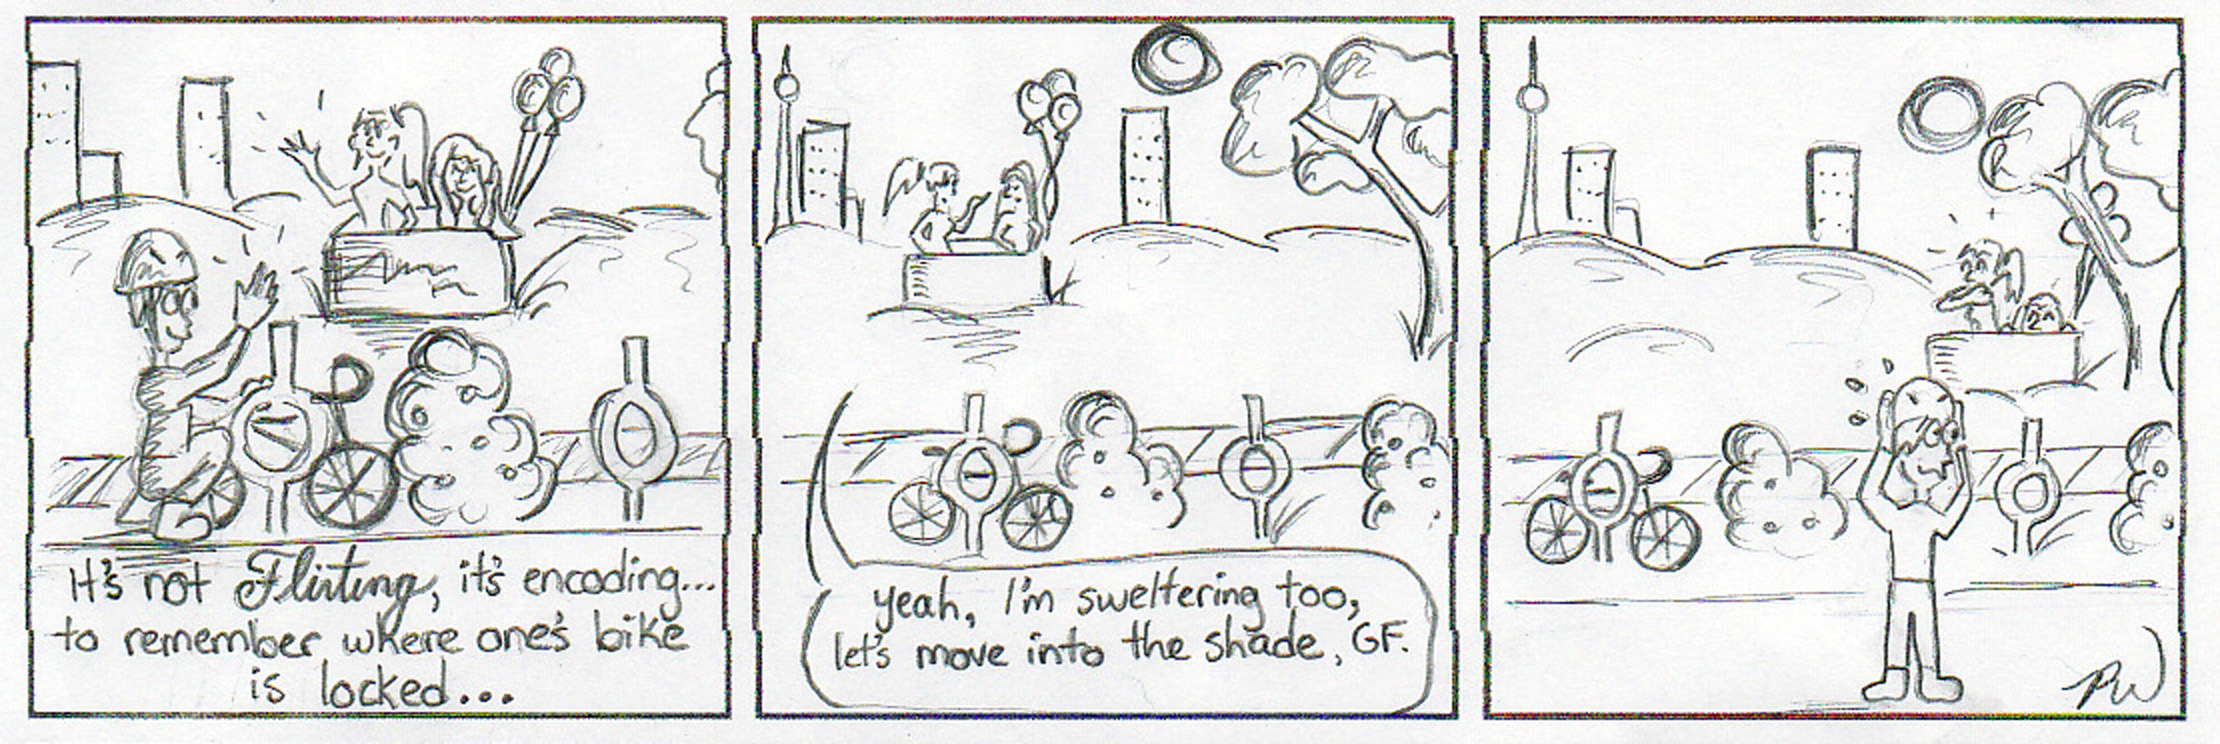 It's not Flirting, it's encoding...
to remember where one's bike
is locked...
yeah, I'm sweltering too,
let's move into the shade, GF.
PW